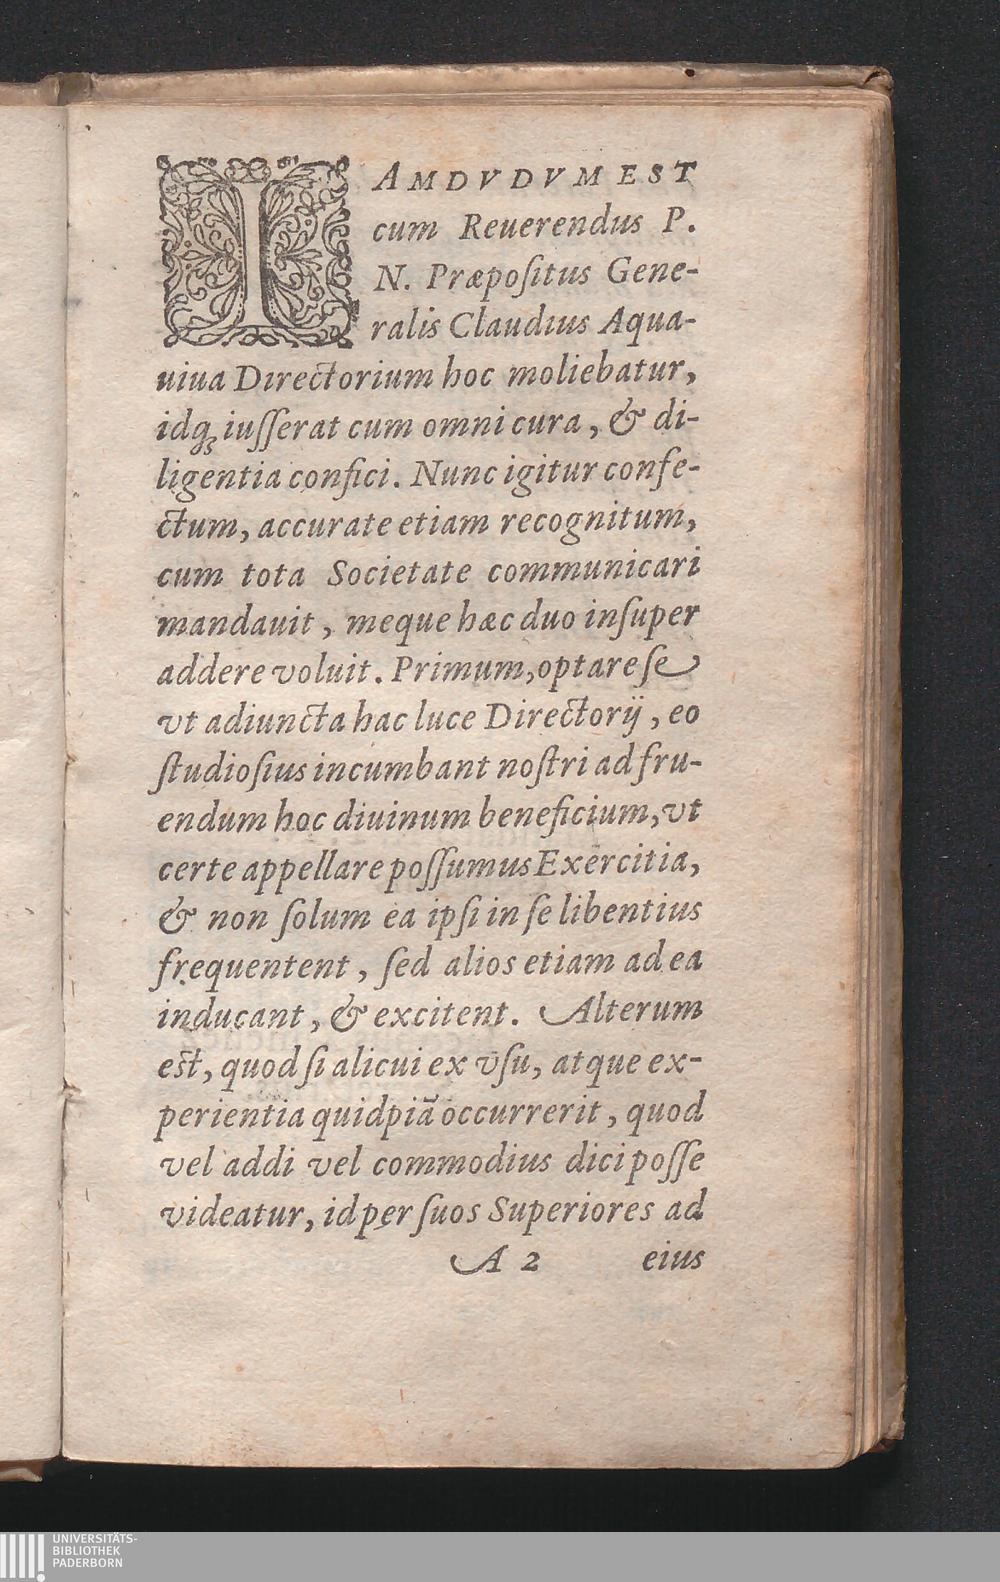 IAMDVDVM EST
cum Reuerendus P.
N. Præpoſitus Gene-
ralis Claudius Aqua-
uiua Directorium hoc moliebatur,
idq́; iuſſerat cum omni cura, & di-
ligentia confici. Nunc igitur confe-
ctum, accurate etiam recognitum,
cum tota Societate communicari
mandauit, meque hæc duo inſuper
addere voluit. Primum, optare ſe
vt adiuncta hac luce Directorij, eo
ſtudioſius incumbant noſtri ad fru-
endum hoc diuinum beneficium, vt
certe appellare poſſumus Exercitia,
& non ſolum ea ipſi in ſe libentius
frequentent, ſed alios etiam ad ea
inducant, & excitent. Alterum
est, quod ſi alicui ex vſu, atque ex-
perientia quidpiã occurrerit, quod
vel addi vel commodius dici poſſe
videatur, id per ſuos Superiores ad
A 2 eius
UNIVERSITÄTS-
BIBLIOTHEK
PADERBORN